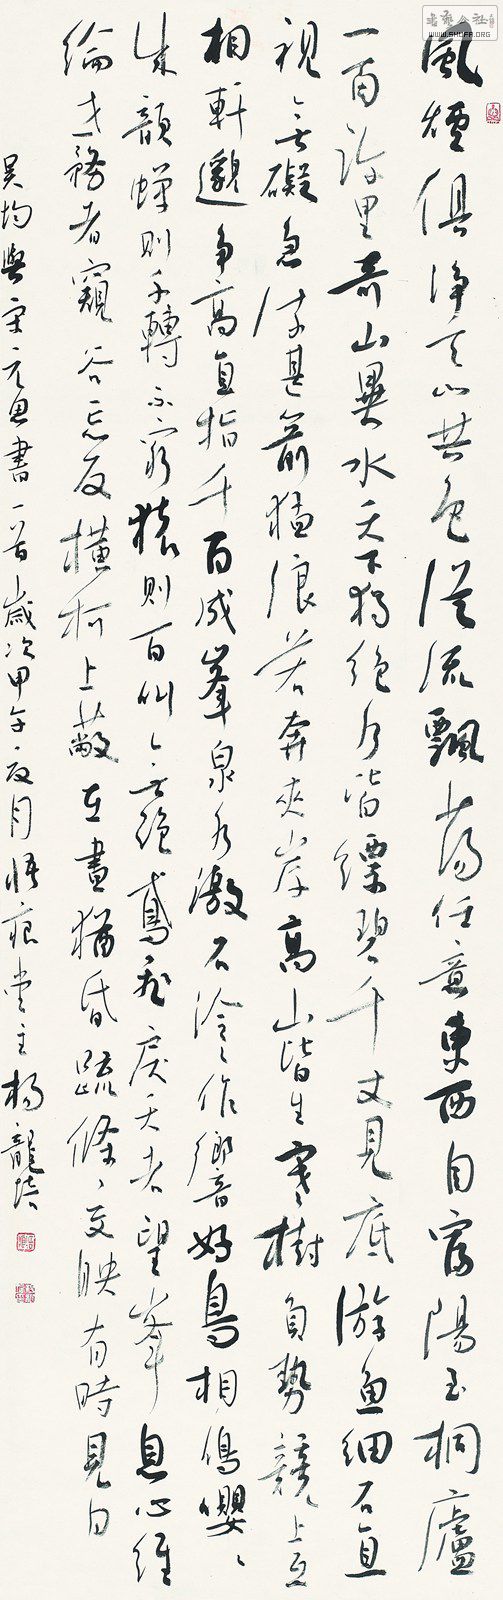 風煙俱淨天山共色從流飄蕩任意東西自富陽至桐廬
一百許里奇山異水天下獨絕水皆縹碧千丈見底游魚細石直
視無礙急湍甚箭猛浪若奔夾岸高山皆生寒樹負勢競上互
相軒邈爭高直指千百成峯泉水激石泠〻作響好鳥相鳴嚶〻
成韻蟬則千轉不窮猿則百叫無絕鳶飛戾天者望峯息心經
綸世務者窺谷忘反橫柯上蔽在晝猶昏疏條〻交映有時見日
吳均與宋元思書一首歲次甲午夏月悟痕堂主楊龍
書藝公社
WWW.SHUFA.ORG